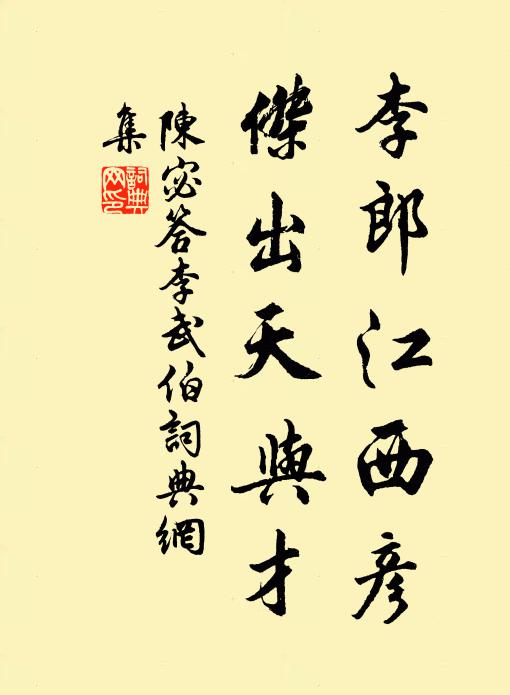 李郎江西彥
傑出天與才
陳宓答李武伯詞典網
集
詞典網印